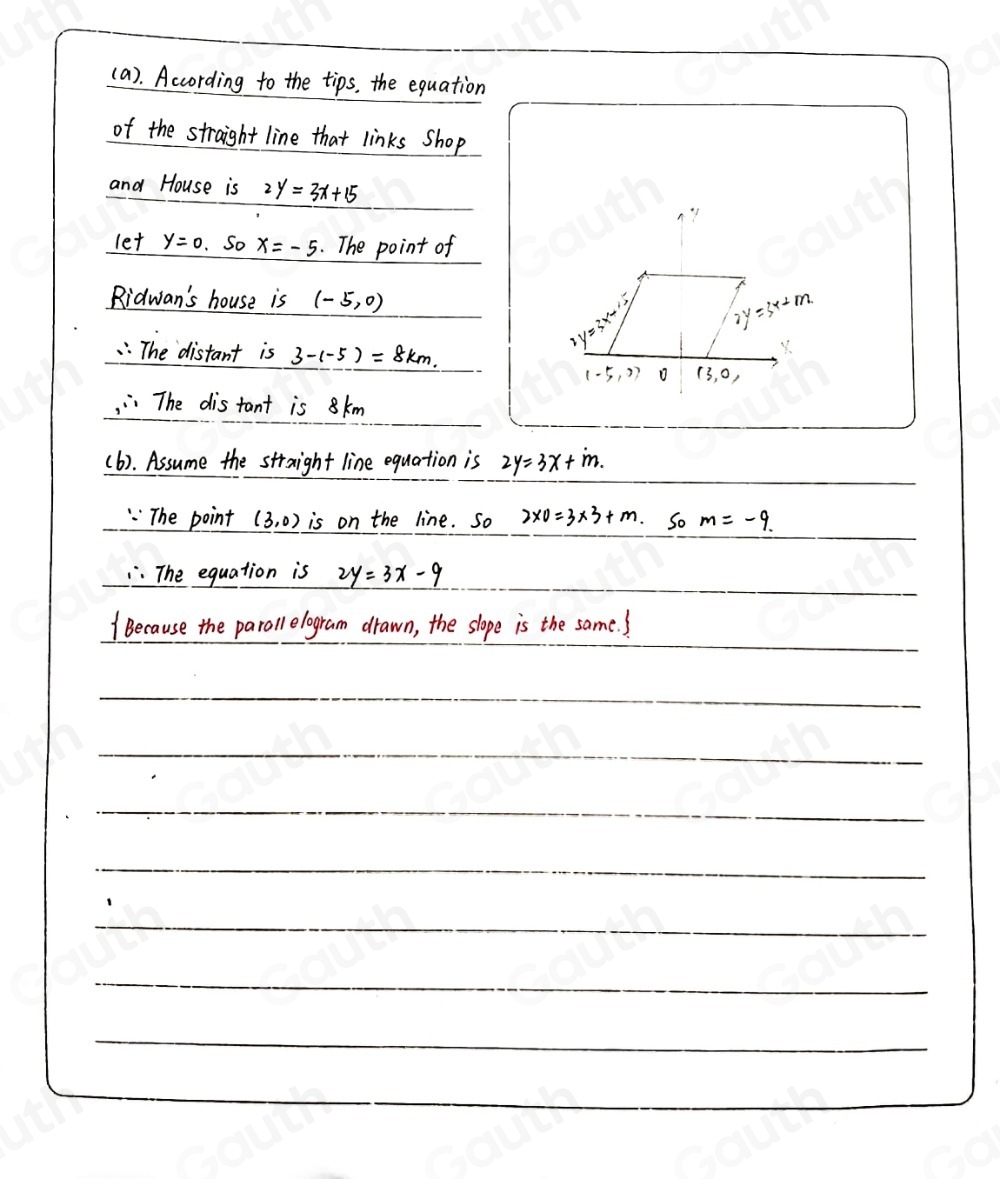 (a). According to the tips, the equation
of the straight line that links Shop
and House is 2y = 3x+15
let y=0. So x = -5. The point of
Ridwan's house is (-5,0)
∴ The distant is 3-(-5) = 8km.
∴ The distant is 8km
y
2y=3x+15
2y=3x+m.
x
(-5,0) 0 (3,0)
(b). Assume the straight line equation is 2y=3x+m.
∵ The point (3,0) is on the line. So 2×0=3×3+m. So m = -9.
∴ The equation is 2y = 3x - 9
{Because the parallelogram drawn, the slope is the same.}
Gauth